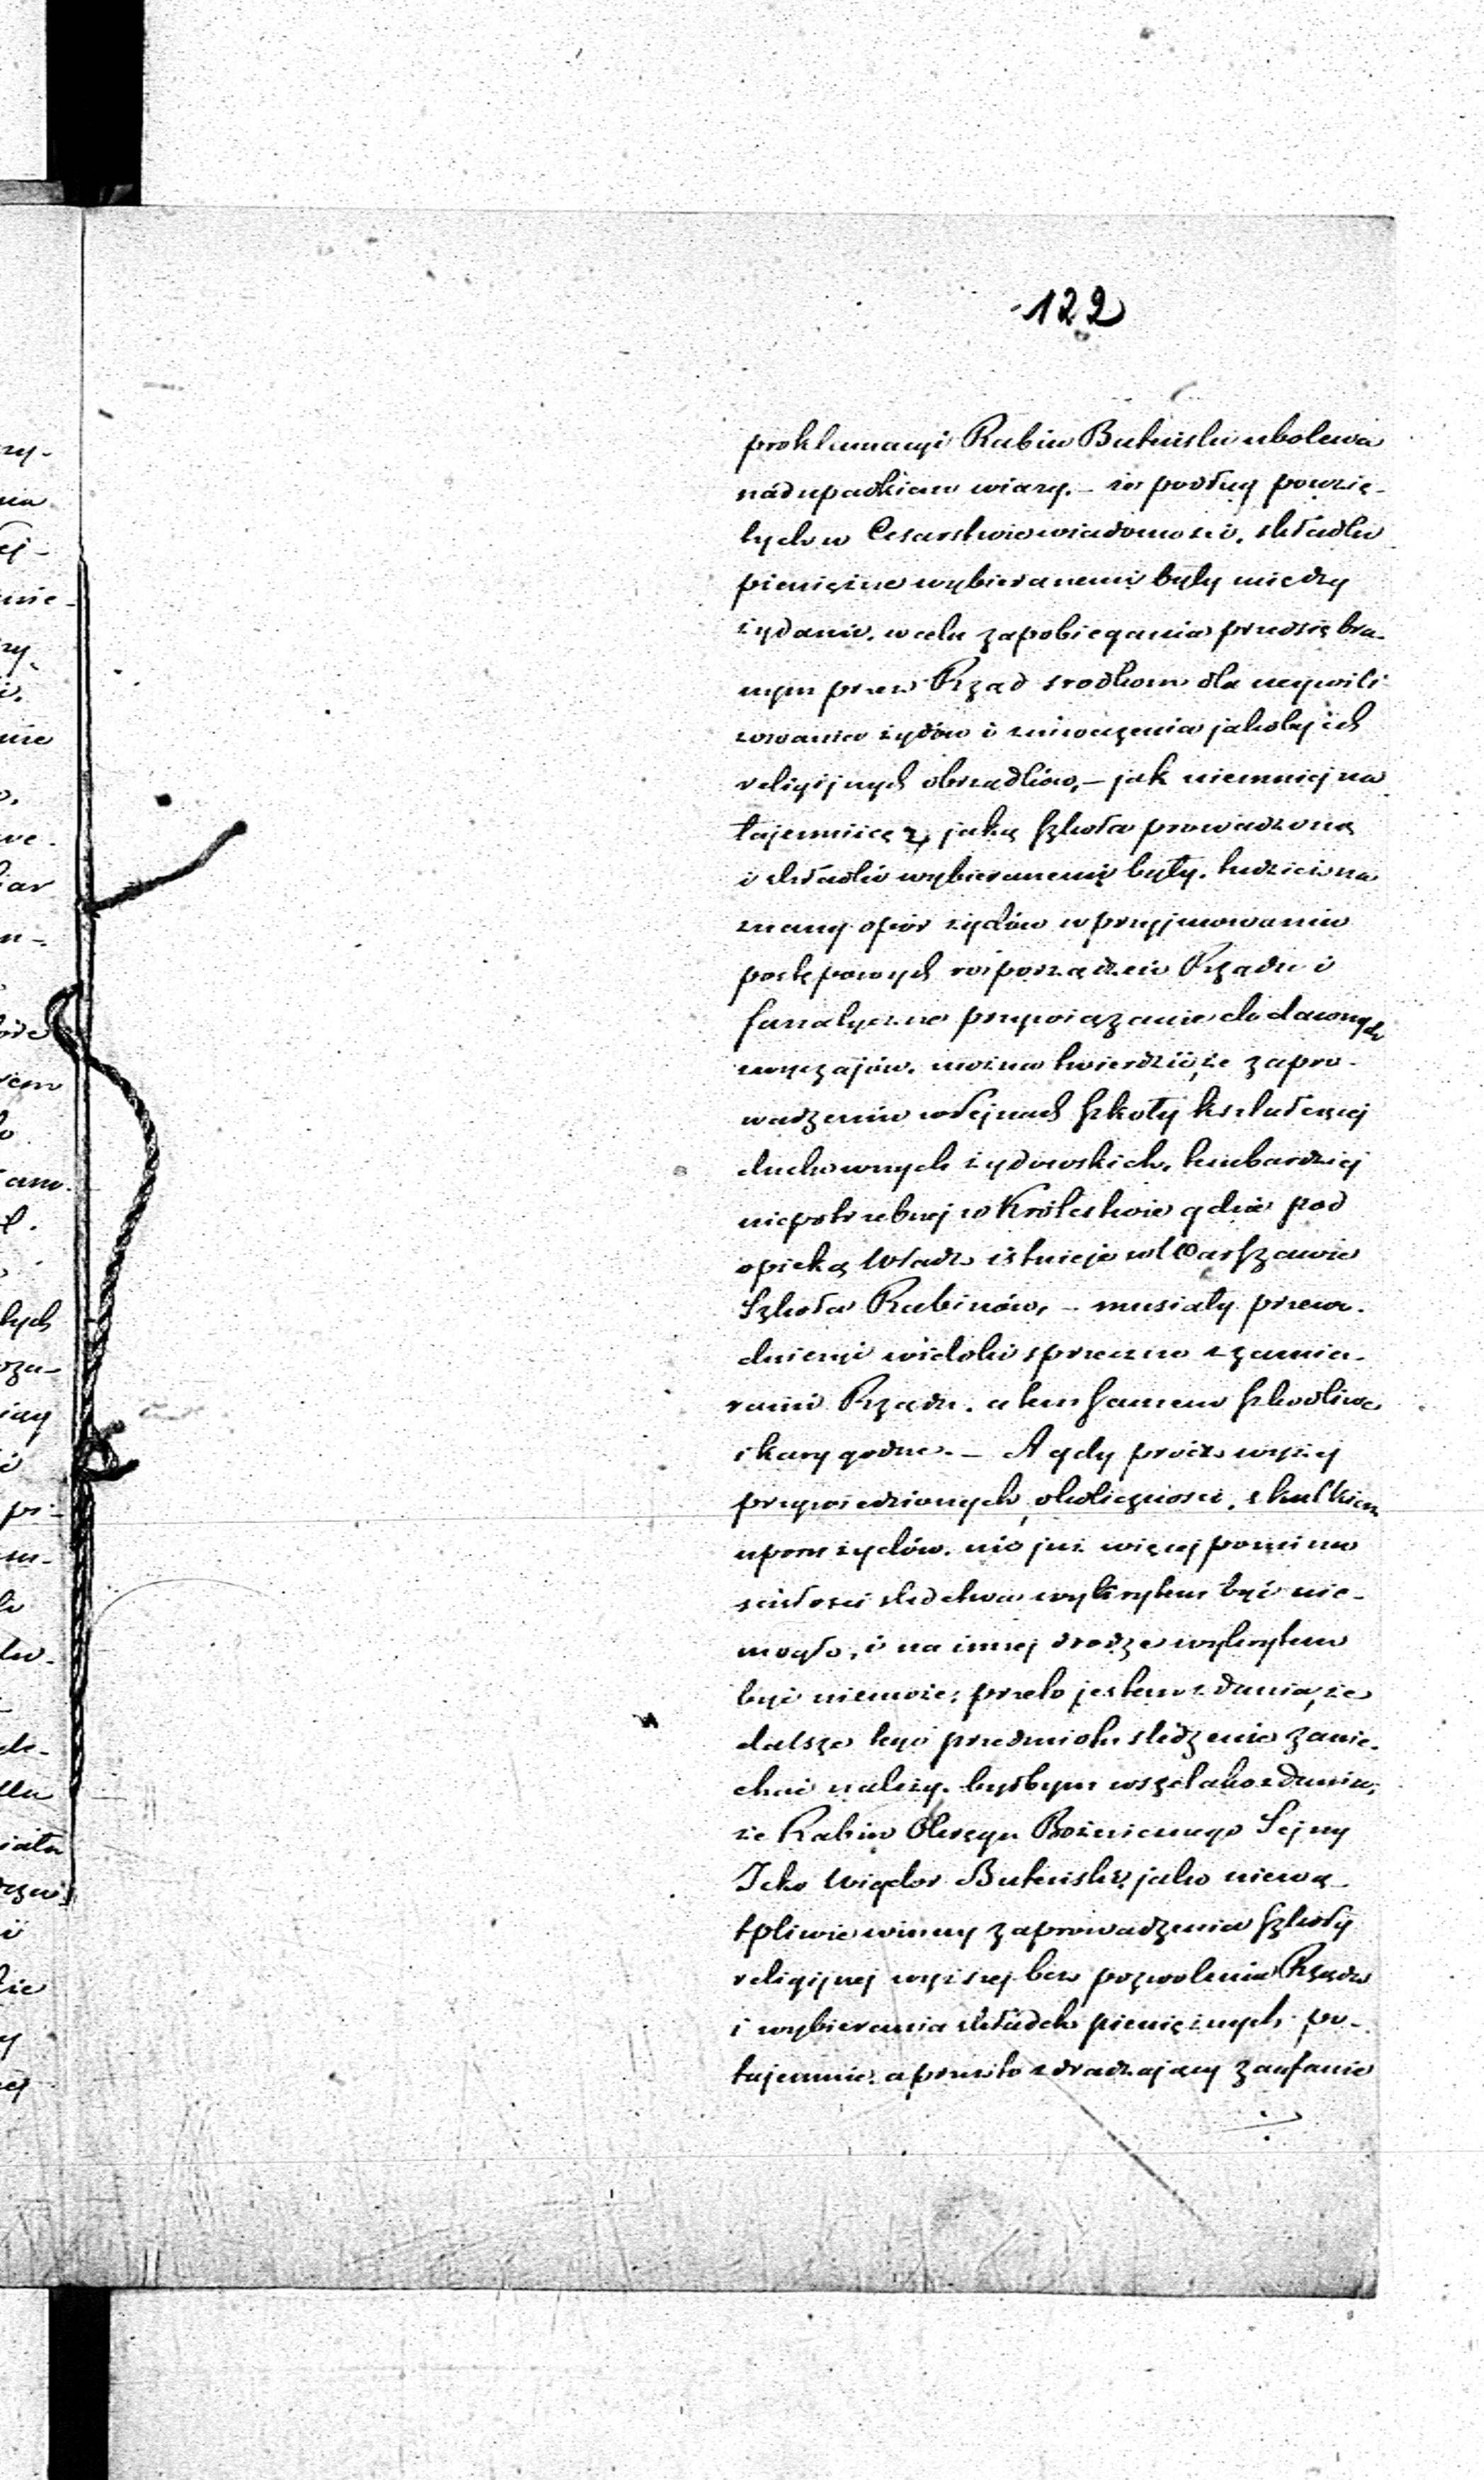 122
proklamacyi Rabin Butciński ubolewa
nad upadkiem wiary, – że podług powzię-
tych w Cesarstwie wiadomości, składki
pieniężne wybieranemi były między
żydami, w celu zapobiegania przedsiębra-
nym przez Rząd srodkom dla ucywili
zowania żydów i zniweczenia jakoby ich
religijnych obrządków, – jak niemniej na
tajemnicę z jaką szkoła prowadzoną
i składki wybieranemi były, tudzież na
znany opór żydów w przyjmowaniu
postępowych rosporządzeń Rządu i
fanatyczne przywiązanie do dawnych
zwyczajów, można twierdzić, że zapro-
wadzenie w Sejnach szkoły kształcącej
duchownych żydowskich, tembardziej
niepotrzebnej w Królestwie gdzie pod
opieką Władz istnieje w Warszawie
Szkoła Rabinów, – musiały przewo-
dniczyć widoki sprzeczne z zamia-
rami Rządu, a tem samem szkodliwe
i kary godne. – A gdy prócz wyżej
przywiedzionych okoliczności, skutkiem
uporu żydów, nic już więcej pomimo
ścisłości śledztwa wykrytem być nie-
mogło, i na innej drodze wykrytem
być niemoże; przeto jestem zdania, że
dalsze tego przedmiotu śledzenie zanie-
chać należy, byłbym wszelako zdania,
że Rabin Okręgu Bożniczego Sejny
Icko Wigdor Butciński, jako niewą-
tpliwie winny zaprowadzenia szkoły
religijnej wyższej bez pozwolenia Rządu
i wybierania składek pieniężnych po-
tajemnie, a przezto zdradzający zaufanie